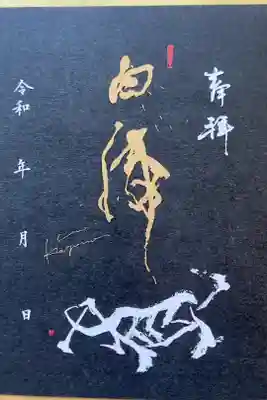 奉拝
白澤
令和 年 月 日